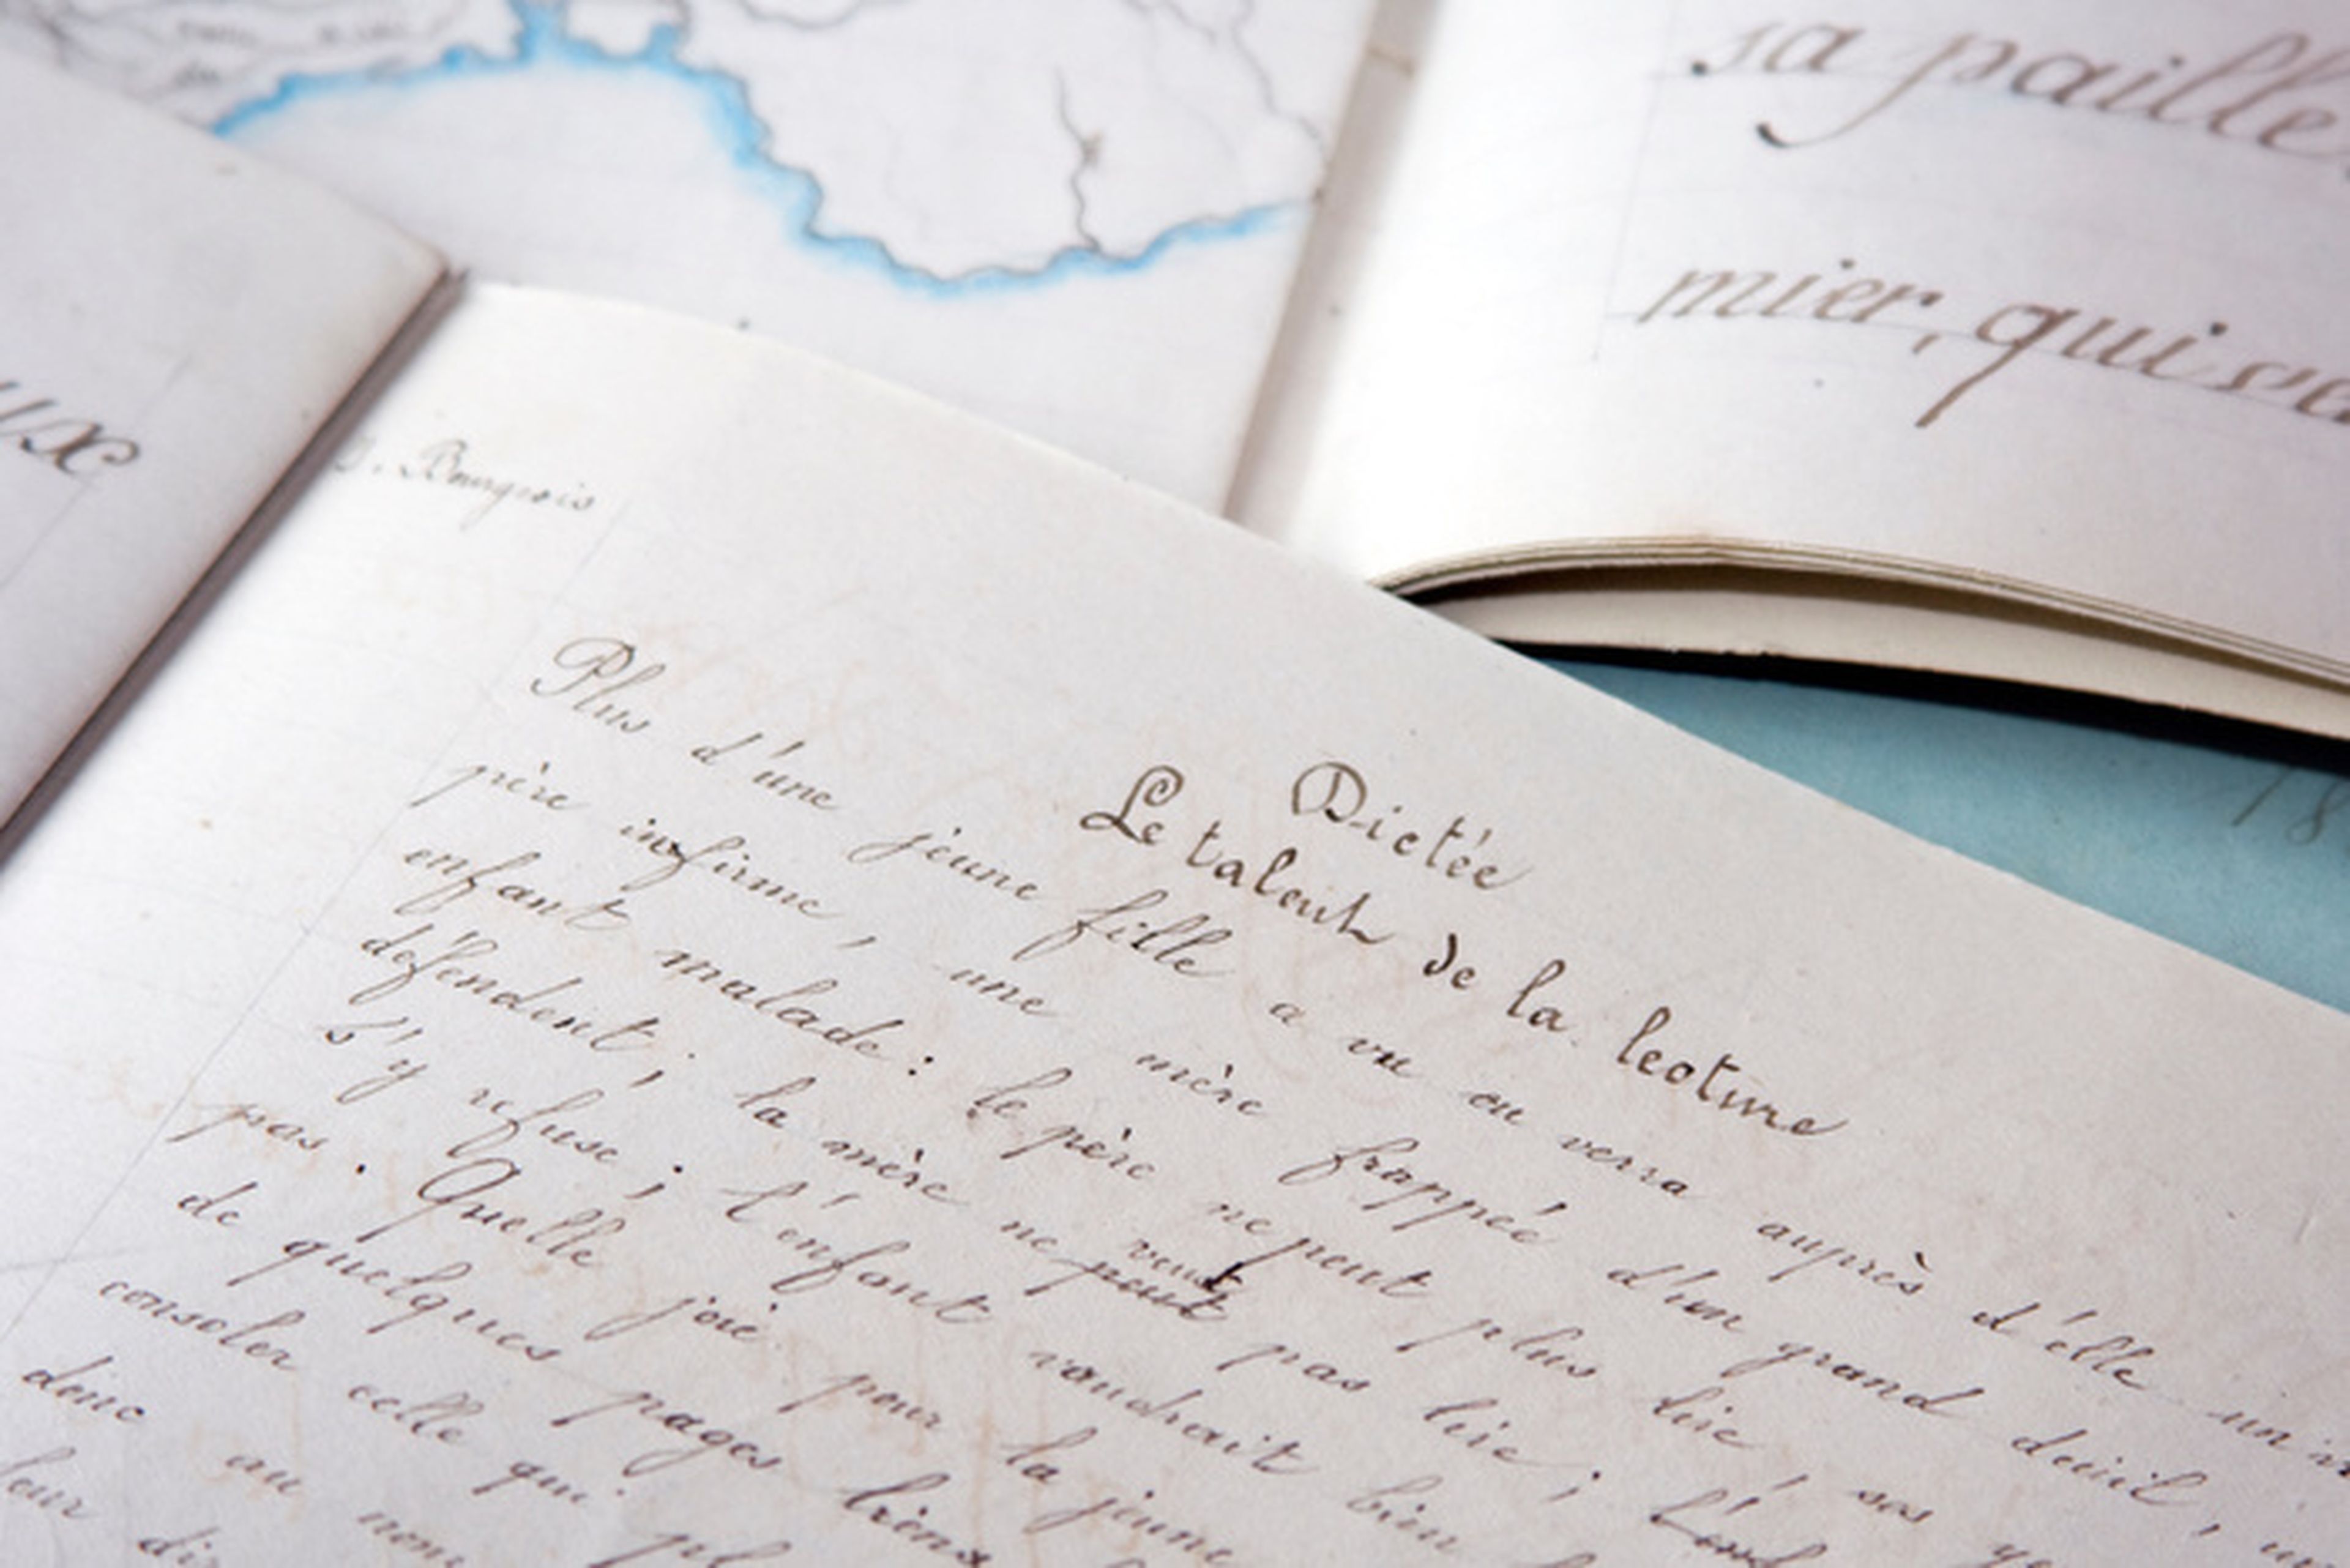 sa paille
mier, qui se
ux
Bourgeois
Dictée
Le talent de la lecture
Plus d'une jeune fille a vu ou verra auprès d'elle un
père infirme, une mère frappée d'un grand deuil,
enfant malade: le père ne peut plus lire, ses
défendent; la mère ne peut veut pas lire;
s'y refuse; l'enfant voudrait bien
pas. Quelle joie pour la jeune
de quelques pages
consoler celle qui
donc au nom
leur
18